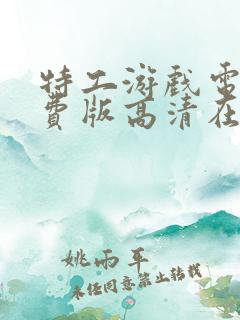 特工游戏电
费版高清在
姚雨平
未经同意禁止转载